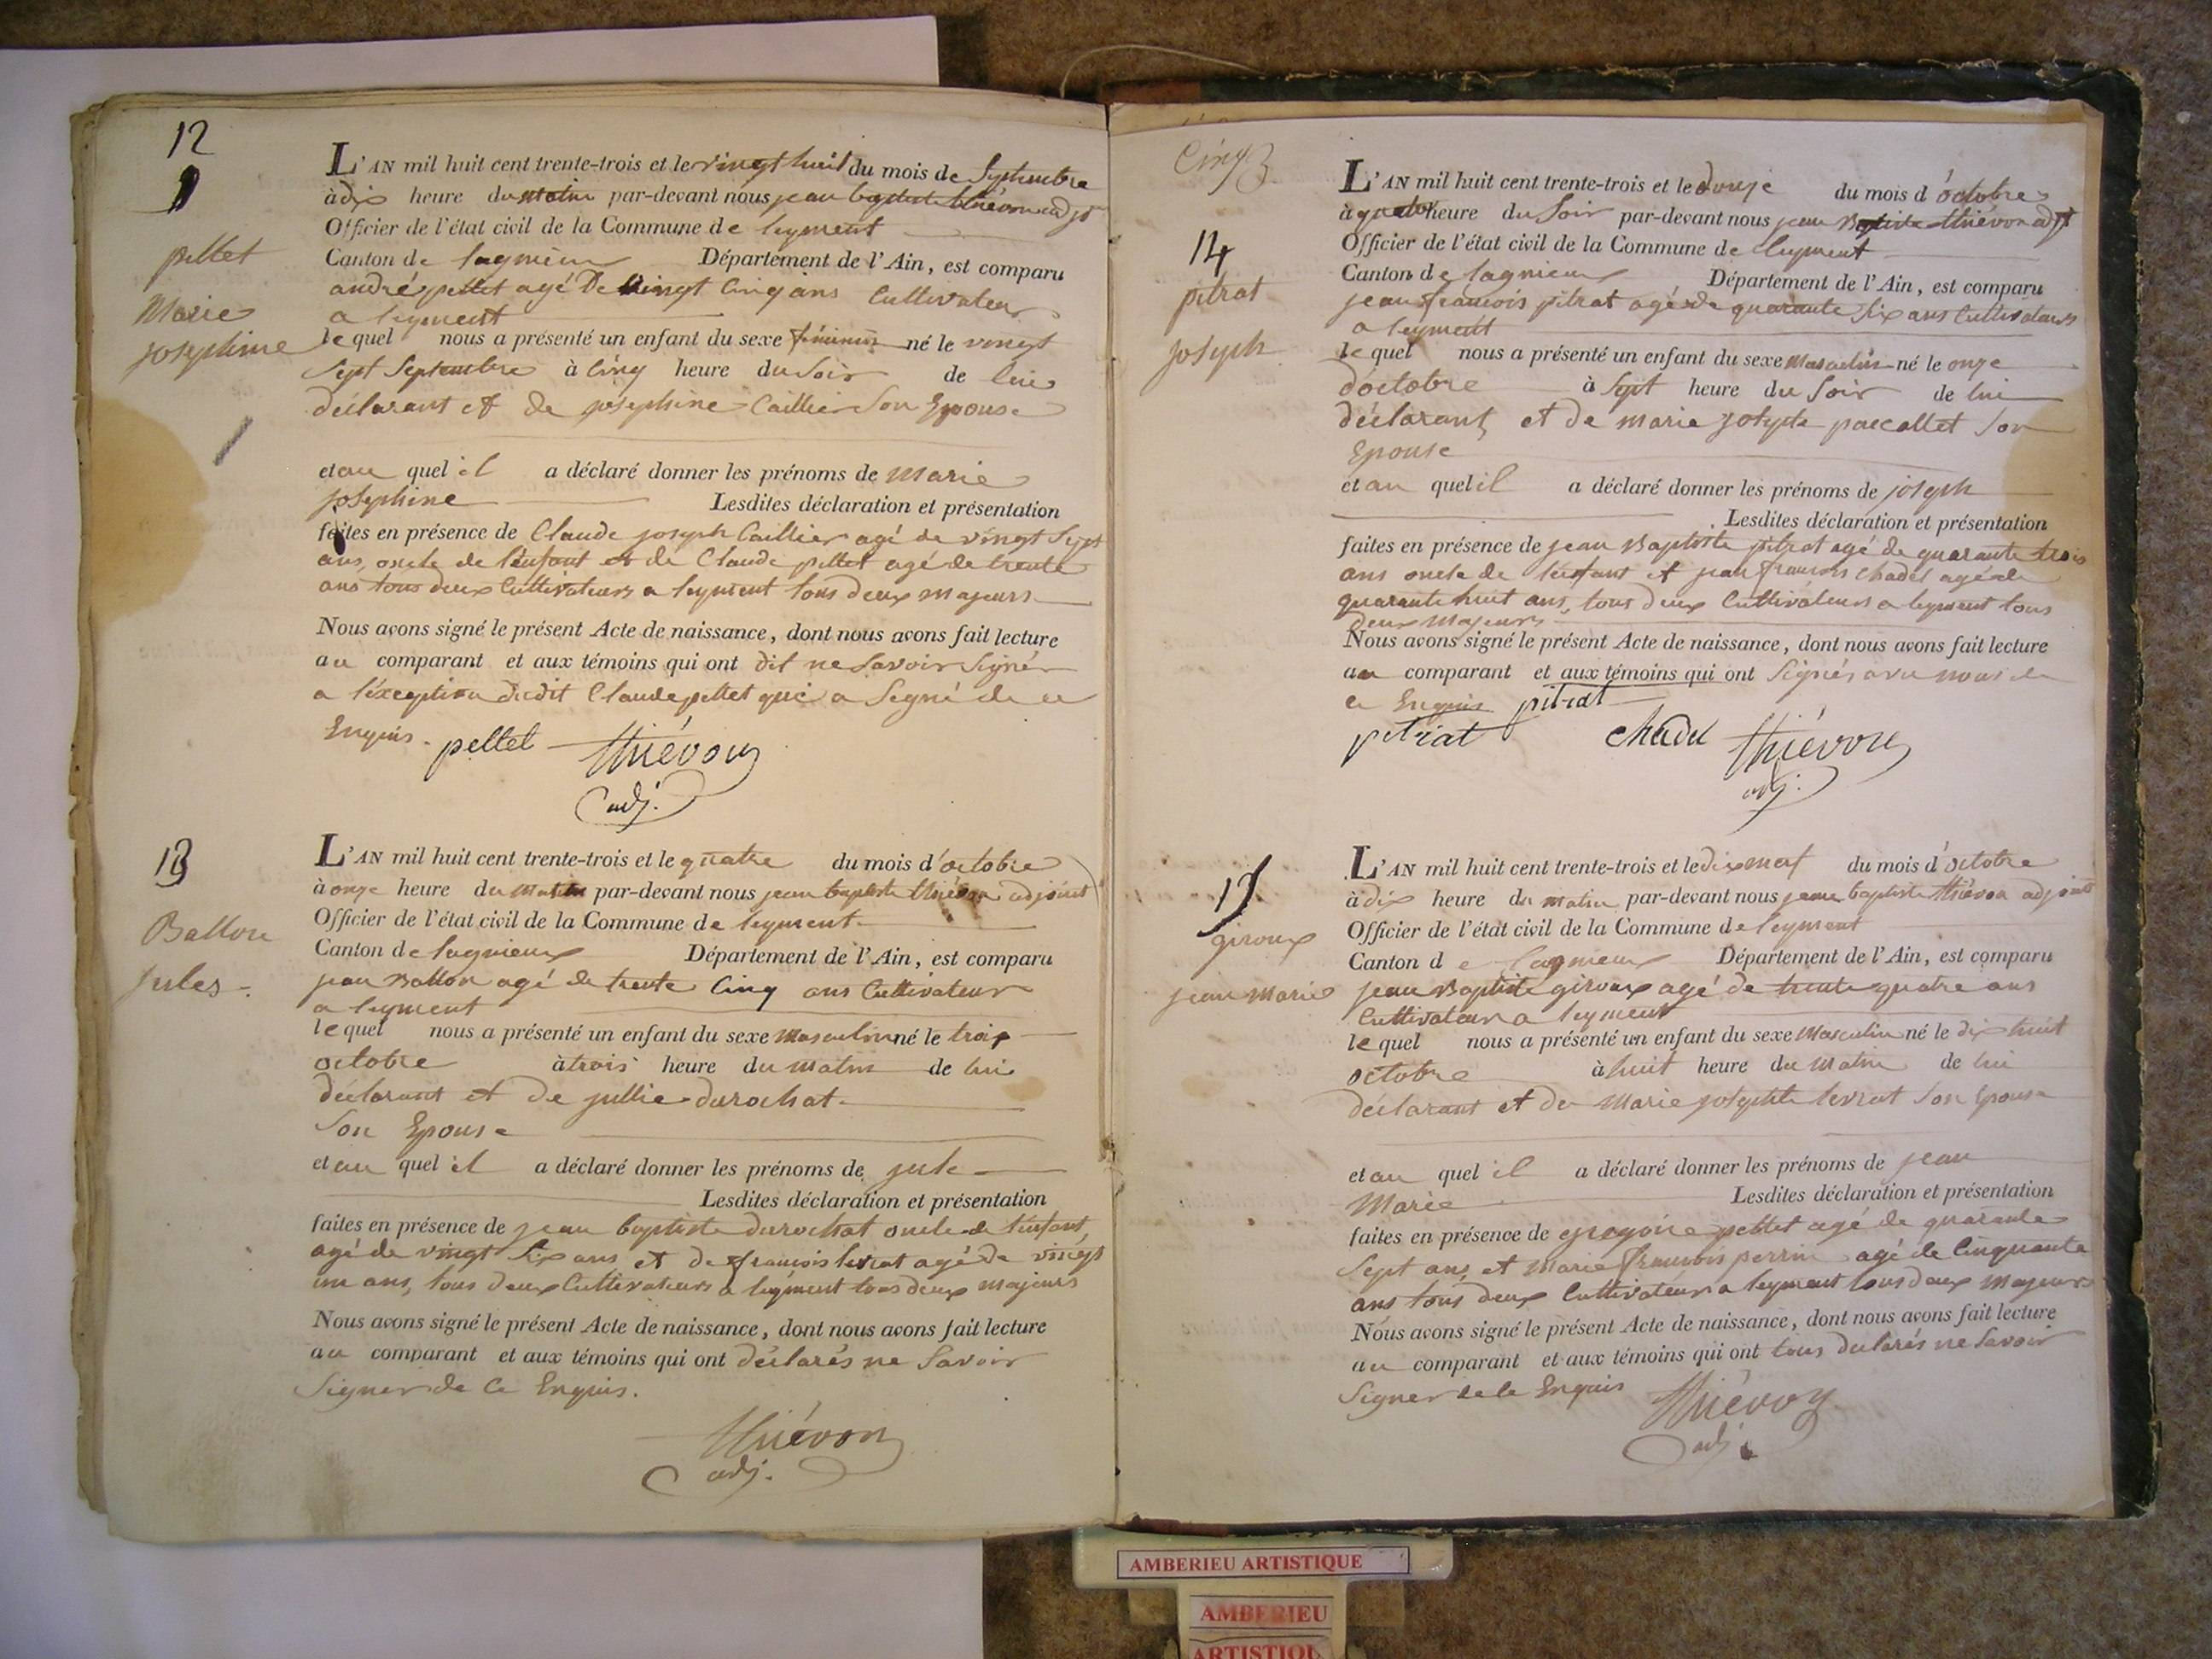 12
pellet
Marie
josephine
L'AN mil huit cent trente-trois et le vingt huit du mois de Septembre
à dix heure du matin par-devant nous jean baptiste thiévon adjt
Officier de l'état civil de la Commune de leyment
Canton de lagnieux Département de l'Ain, est comparu
andré pellet agé De vingt Cinq ans Cultivateur
a leyment
le quel nous a présenté un enfant du sexe féminin né le vingt
Sept Septembre à Cinq heure du Soir de lui
déclarant et de josephine Caillier Son Epouse
et au quel il a déclaré donner les prénoms de Marie
josephine Lesdites déclaration et présentation
faites en présence de Claude joseph Caillier agé de vingt Sept
ans, oncle de l'enfant et de Claude pellet agé de trente
ans tous deux Cultivateurs a leyment tous deux majeurs
Nous avons signé le présent Acte de naissance, dont nous avons fait lecture
au comparant et aux témoins qui ont dit ne Savoir Signer
a l'exception dudit Claude pellet qui a Signé de ce
Enquis. pellet thiévon
adj.
13
Ballon
jules
L'AN mil huit cent trente-trois et le quatre du mois d'octobre
à onze heure du matin par-devant nous jean baptiste thiévon adjoint
Officier de l'état civil de la Commune de leyment
Canton de lagnieux Département de l'Ain, est comparu
jean Ballon agé de trente Cinq ans Cultivateur
a leyment
le quel nous a présenté un enfant du sexe Masculin né le trois
octobre à trois heure du matin de lui
déclarant et de jullie durochat
Son Epouse
et au quel il a déclaré donner les prénoms de jule
Lesdites déclaration et présentation
faites en présence de jean baptiste durochat oncle de l'enfant
agé de vingt Six ans et de françois levrat agé de vingt
un ans, tous deux Cultivateurs a leyment tous deux majeurs
Nous avons signé le présent Acte de naissance, dont nous avons fait lecture
au comparant et aux témoins qui ont déclarés ne Savoir
Signer de Ce Enquis.
thiévon
adj.
Cinq
14
pitrat
joseph
L'AN mil huit cent trente-trois et le douze du mois d'octobre
à quatre heure du Soir par-devant nous jean Baptiste thiévon adjt
Officier de l'état civil de la Commune de leyment
Canton de lagnieux Département de l'Ain, est comparu
jean françois pitrat agé de quarante Six ans Cultivateur
a leyment
le quel nous a présenté un enfant du sexe Masculin né le onze
d'octobre à Sept heure du Soir de lui
déclarant et de marie josephte pascallet Son
Epouse
et au quel il a déclaré donner les prénoms de joseph
Lesdites déclaration et présentation
faites en présence de jean Baptiste pitrat agé de quarante trois
ans oncle de l'enfant et jean françois chadel agé de
quarante huit ans, tous deux Cultivateurs a leyment tous
deux Majeurs
Nous avons signé le présent Acte de naissance, dont nous avons fait lecture
au comparant et aux témoins qui ont Signés avec nous de
ce Enquis pitrat
pitrat chadel thiévon
adj.
15
giroux
jean Marie
L'AN mil huit cent trente-trois et le dix neuf du mois d'octobre
à dix heure du matin par-devant nous jean baptiste thiévon adjoint
Officier de l'état civil de la Commune de leyment
Canton de lagnieux Département de l'Ain, est comparu
jean Baptiste giroux agé de trente quatre ans
Cultivateur a leyment
le quel nous a présenté un enfant du sexe Masculin né le dix huit
octobre à huit heure du Matin de lui
déclarant et de Marie josephte levrat Son Epouse
et au quel il a déclaré donner les prénoms de jean
Marie Lesdites déclaration et présentation
faites en présence de gregoire pellet agé de quarante
Sept ans et Marie françois perrin agé de Cinquante
ans tous deux Cultivateurs a leyment tous deux Majeurs
Nous avons signé le présent Acte de naissance, dont nous avons fait lecture
au comparant et aux témoins qui ont tous declarés ne Savoir
Signer de Ce Enquis thiévon
adj.
AMBERIEU ARTISTIQUE
AMBERIEU
ARTISTIQU